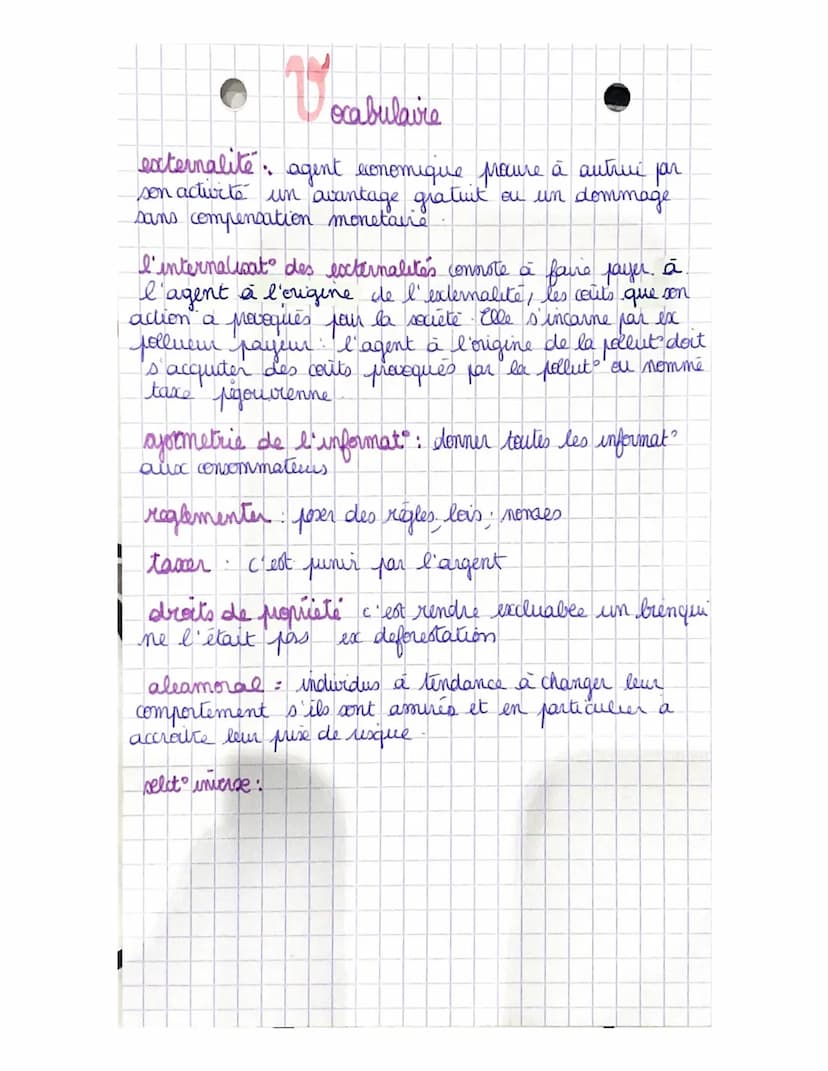 Vocabulaire
externalité : agent economique procure à autrui par
son activité un avantage gratuit ou un dommage
sans compensation monetaire.
l'internalisat° des externalités consiste à faire payer à
l'agent à l'origine de l'externalité, les coûts que son
action a provoqués pour la société. Elle s'incarne par ex
pollueur payeur : l'agent à l'origine de la pollut° doit
s'acquiter des coûts provoqués par la pollut° ou nommé
taxe pigouvienne.
asymetrie de l'informat° : donner toutes les informat°
aux consommateurs
reglementer : poser des règles, lois, normes
taxer : c'est punir par l'argent
droits de propriété c'est rendre excluable un bien qui
ne l'était pas ex deforestation
alea moral : individus à tendance à changer leur
comportement s'ils sont assurés et en particulier a
accroitre leur prise de risque.
select° inverse :